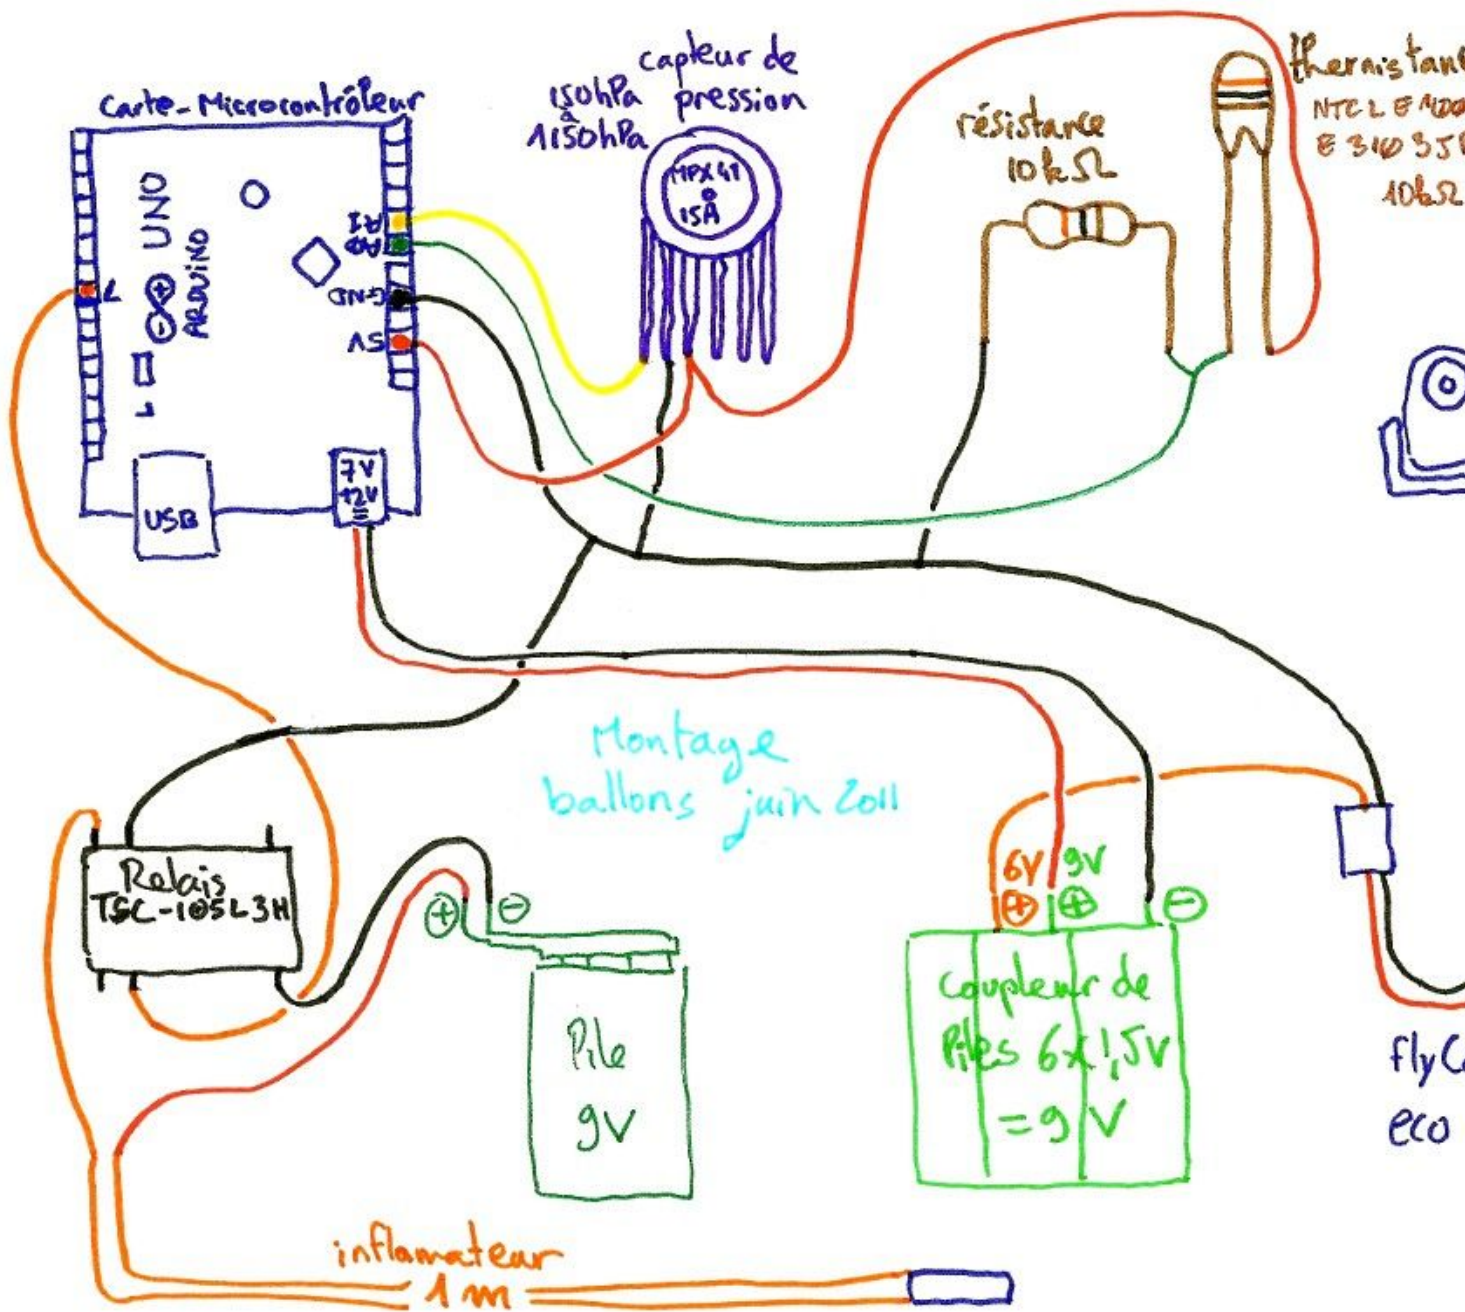 Carte-Microcontrôleur
UNO
ARDUINO
A1
A0
GND
5V
7
L
USB
7V
12V
capteur de
pression
150hPa
à
1150hPa
MPX41
15A
résistance
10kΩ
thermistan
10kΩ
Montage
ballons juin 2011
Relais
TSC-105L3H
+
-
Pile
9V
6V
9V
+
+
-
Coupleur de
Piles 6x1,5V
= 9 V
flyC
eco
inflamateur
1m